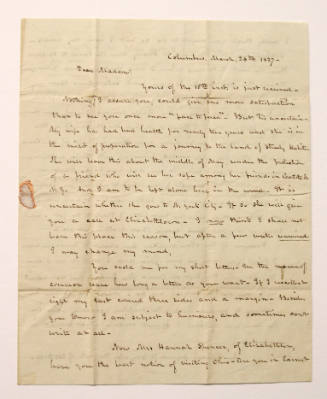 Columbus, March, 24th 1837-
Dear Madam
Yours of the 15th inst is just received.
Nothing, I assure you, could give me more satisfaction
than to see you once more "face to face". But this uncertain
My wife has had bad health for nearly two years and she is in
the midst of preparation for a journey to the land of Steady Habits
She will leave this about the middle of May under the protection
of a friend who will see her safe among her friends in
N.J. And I am to be left alone here in the woods. It is
uncertain whether she goes to N. York City - If so she will give
you a call at Elizabethtown. I now think I shall not
leave this place this season, but after a few weeks
I may change my mind,
You scold me for my short letters
how long a letter do you want. If I recollect
right my last covered three sides and a margin. Besides
you know I am subject to humours, and sometimes can't
write at all.
Now Mrs Hannah Spencer, of Elizabethtown,
have you the least notion of visiting Ohio - Are you in earnest